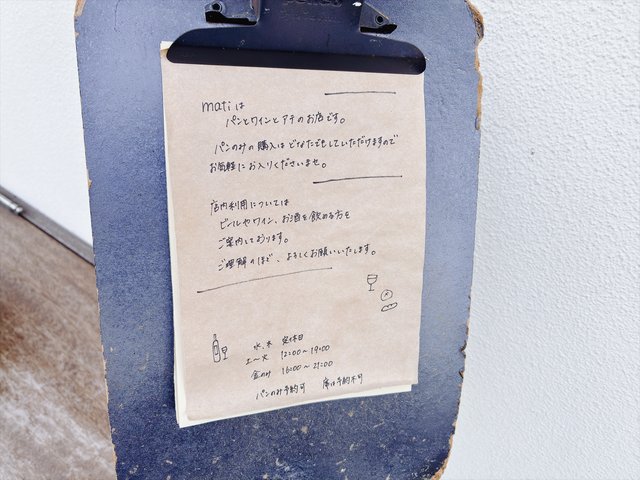 matiは
パンとワインとアテのお店です。
パンのみの購入はどなたでもしていただけますので
お気軽にお入りくださいませ。
店内利用については
ビールやワイン、お酒を飲める方を
ご案内しております。
ご理解のほど、よろしくお願いいたします。
水、木 定休日
土〜火 12:00〜19:00
金のみ 16:00〜21:00
パンのみ予約可 席は予約不可